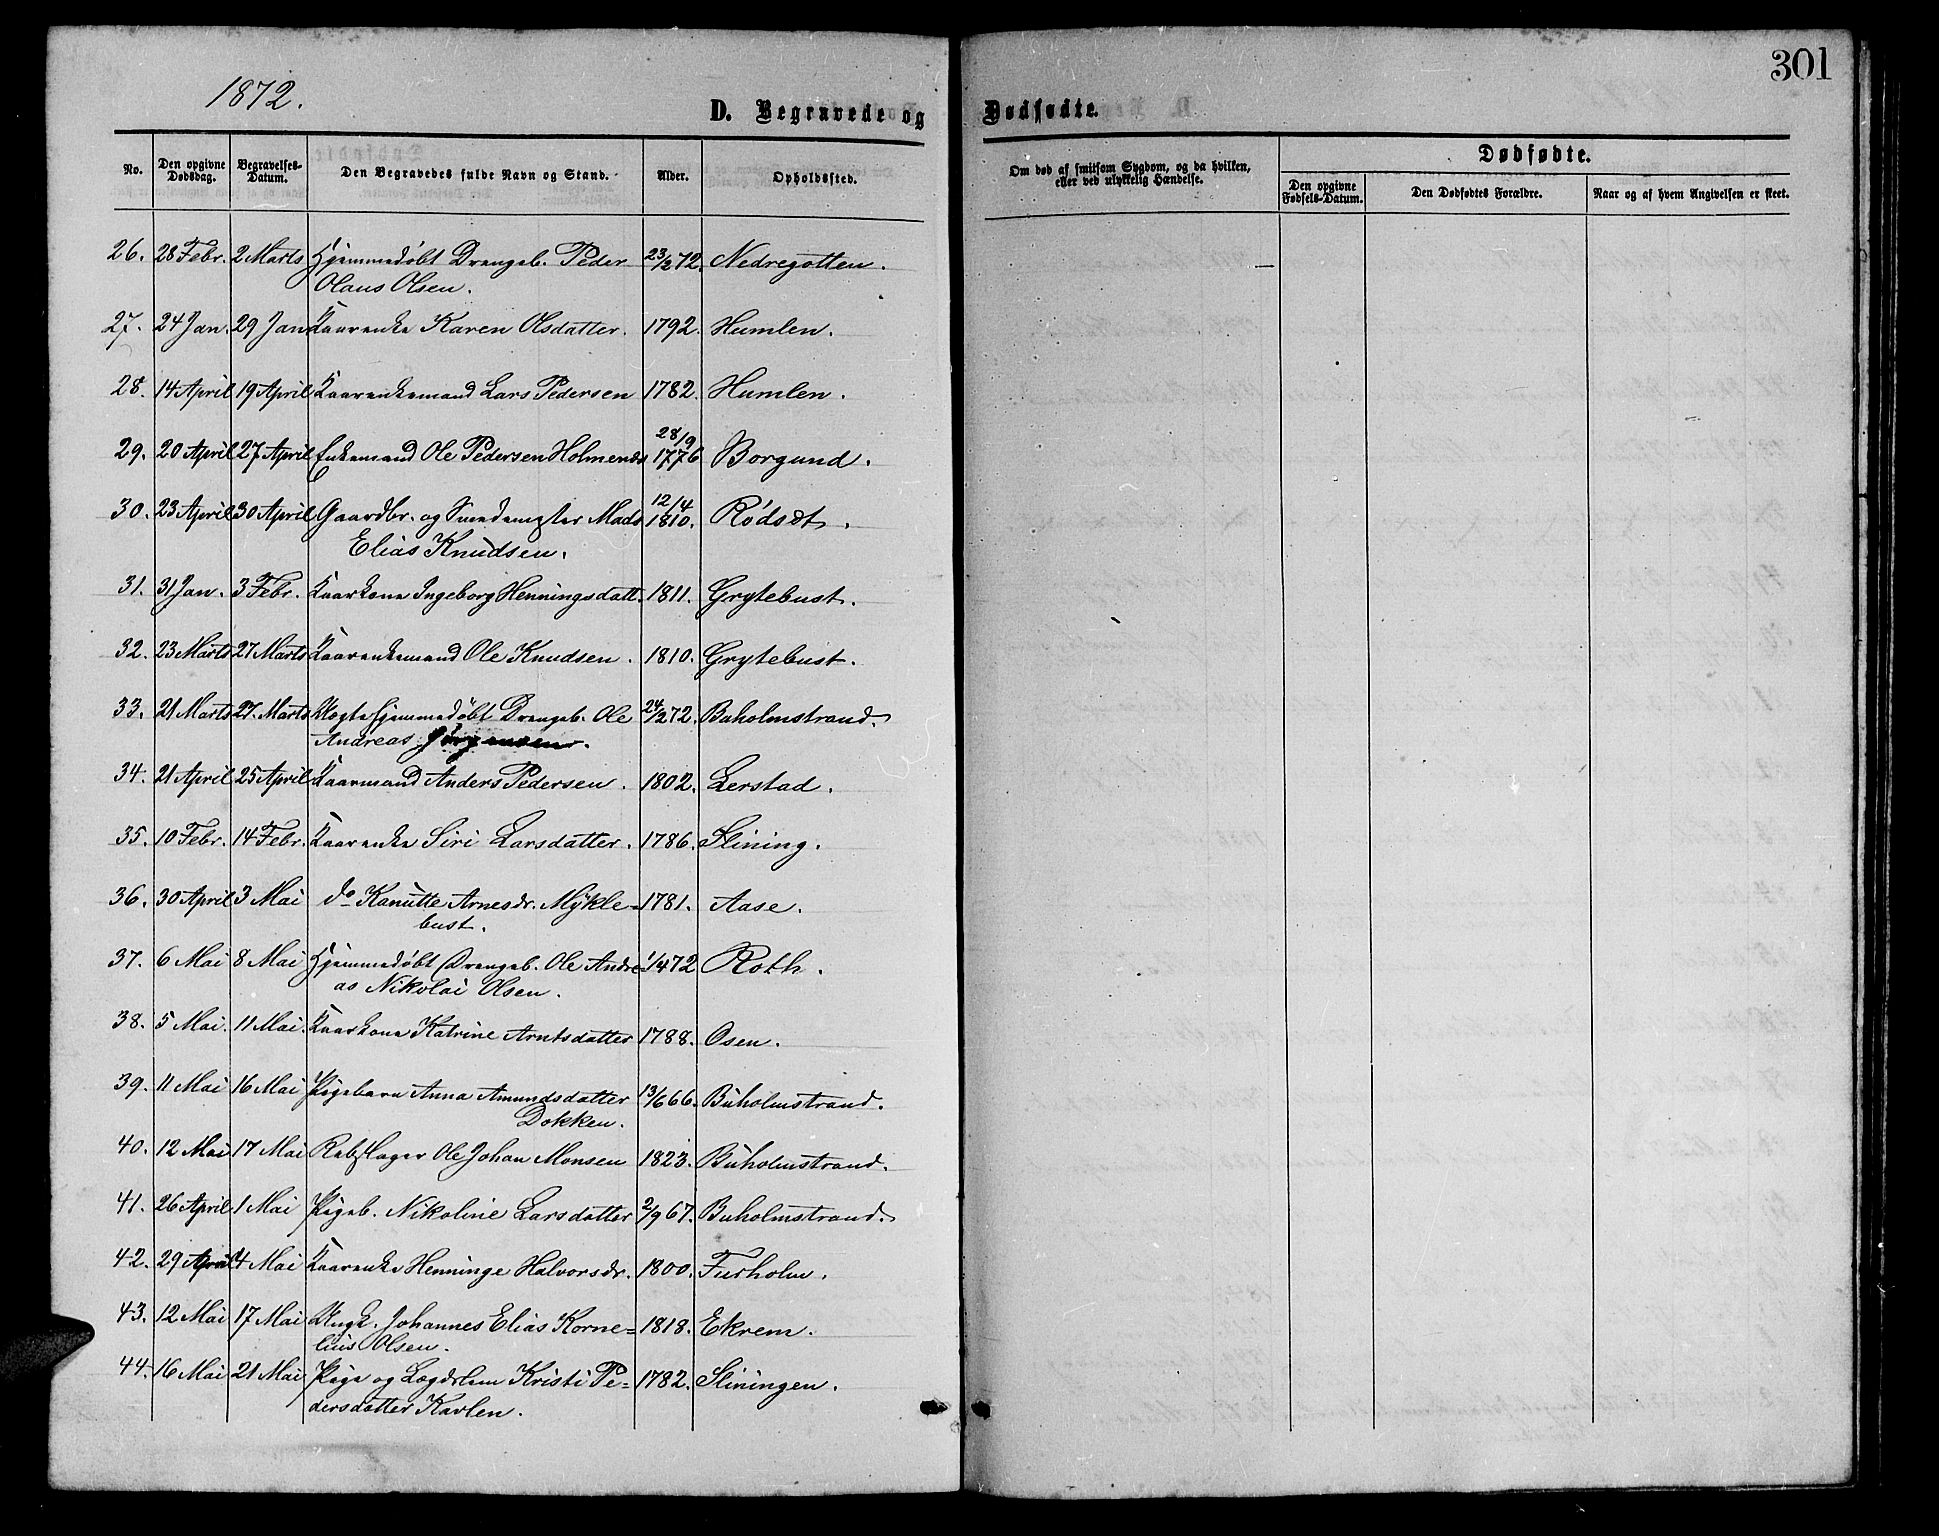 1872.
301
D. Begravede og Dødfødte.
No.
Den opgivne Dødsdag.
Begravelses-Datum.
Den Begravedes fulde Navn og Stand.
Alder.
Opholdssted.
Om død af smitsom Sygdom, og da hvilken, eller ved ulykkelig Hændelse.
Dødfødte.
Den opgivne Fødsels-Datum.
Den Dødfødtes Forældre.
Naar og af hvem Angivelsen er skeet.
26. 28 Febr. 2 Marts Hjemmedøbt Drengeb. Peder 23/2 72. Nedregotten. —
Olaus Olsen.
27. 24 Jan. 29 Jan Kaarenke Karen Olsdatter. 1792. Humlen.
28. 14 April 19 April Kaarenkemand Lars Pedersen 1782. Humlen.
29. 20 April 27 April Enkemand Ole Pedersen Holmenæs 28/9 1776 Borgund.
30. 23 April 30 April Gaardbr. og Smedemester Mads 12/4 1810. Rødsæt.
Elias Knudsen.
31. 31 Jan. 3 Febr. Kaarkone Ingeborg Henningsdatt. 1811. Grytebust.
32. 23 Marts 27 Marts Kaarenkemand Ole Knudsen. 1810. Grytebust.
33. 21 Marts 27. Marts Uægte hjemmedøbt Drengeb. Ole 24/2 72. Buholmstrand.
Andreas Jørgensen.
34. 21 April 25 April Kaarmand Anders Pedersen. 1802. Lerstad.
35. 10 Febr. 14 Febr. Kaarenke Siri Larsdatter. 1786. Slining.
36. 30 April 3 Mai do Kanutte Arnesdr. Mykle= 1781. Aase.
bust.
37. 6 Mai 8 Mai Hjemmedøbt Drengeb. Ole Andre= 1/4 72 Roth.
as Nikolai Olsen.
38. 5 Mai. 11 Mai. Kaarkone Katrine Arntsdatter 1788. Osen.
39. 11 Mai 16 Mai Pigebarn Anna Amundsdatter 13/6 66. Buholmstrand.
Dokken.
40. 12 Mai 17 Mai Rebslager Ole Johan Monsen 1823. Buholmstrand.
41. 26 April 1 Mai Pigeb. Nikoline Larsdatter 2/9 67. Buholmstrand.
42. 29 April 4 Mai Kaarenke Henninge Halvorsdr. 1800. Furholm.
43. 12 Mai 17 Mai Ungk. Johannes Elias Korne= 1818. Ekrem.
lius Olsen.
44. 16 Mai 21 Mai Pige og Lægdslem Kristi Pe= 1782. Sliningen.
dersdatter Kavlen.